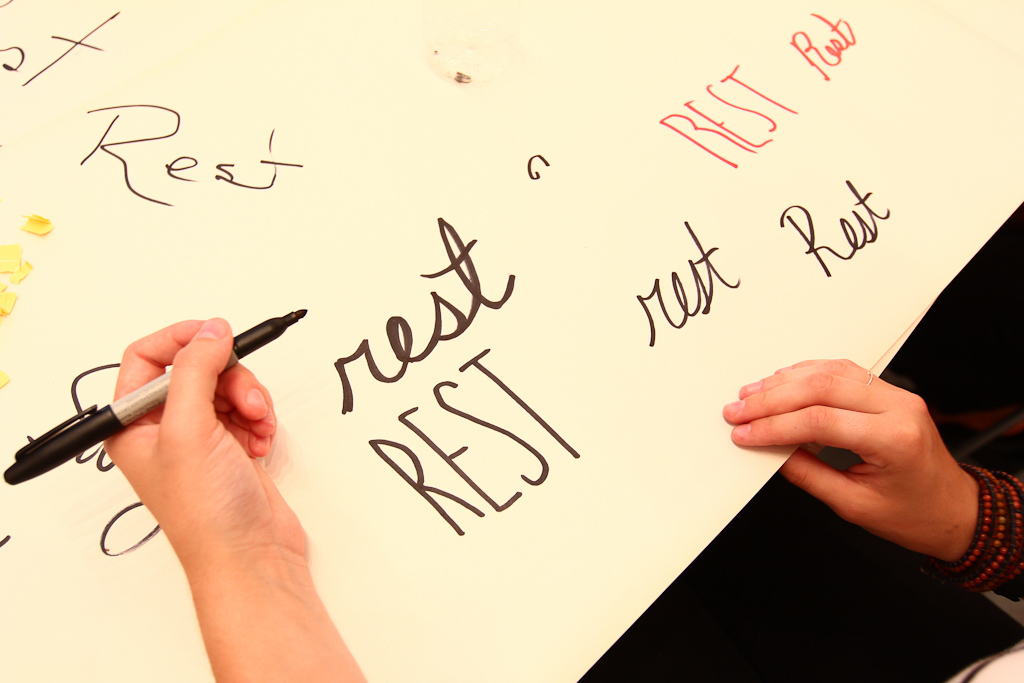 Rest
REST Rest
rest
REST
rest Rest